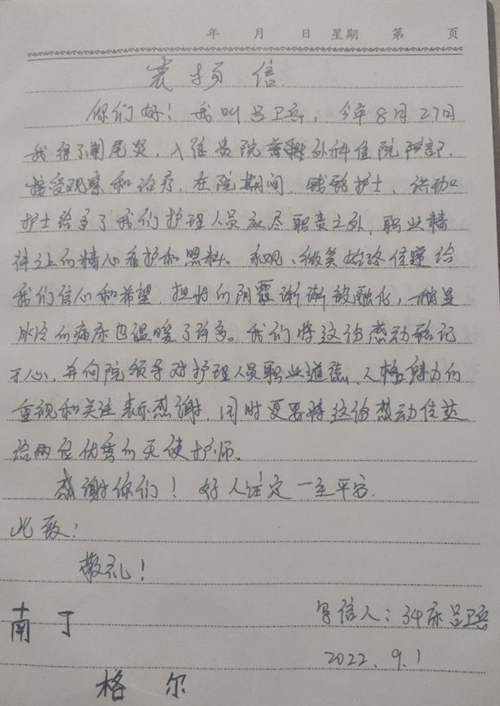 年 月 日 星期 第 页
表扬信
你们好！我叫吕卫兵，今年8月27日
我得了阑尾炎，入住贵院 外科住院
接受观察和治疗，在院期间， 护士、
护士给予了我们护理人员应尽职责之外，职业精
神上的精心看护和照料。 微笑始终传递给
我们信心和希望，担忧的阴霾渐渐被融化，
冰冷的病床也温暖了许多。我们将这份感动铭记
于心，并向院领导对护理人员职业道德、人格魅力的
重视和关注表示感谢，同时更要将这份感动传达
给两位优秀的天使护师。
感谢你们！好人注定一生平安.
此致！
敬礼！
南丁 写信人：34床吕卫兵
2022.9.1
格尔